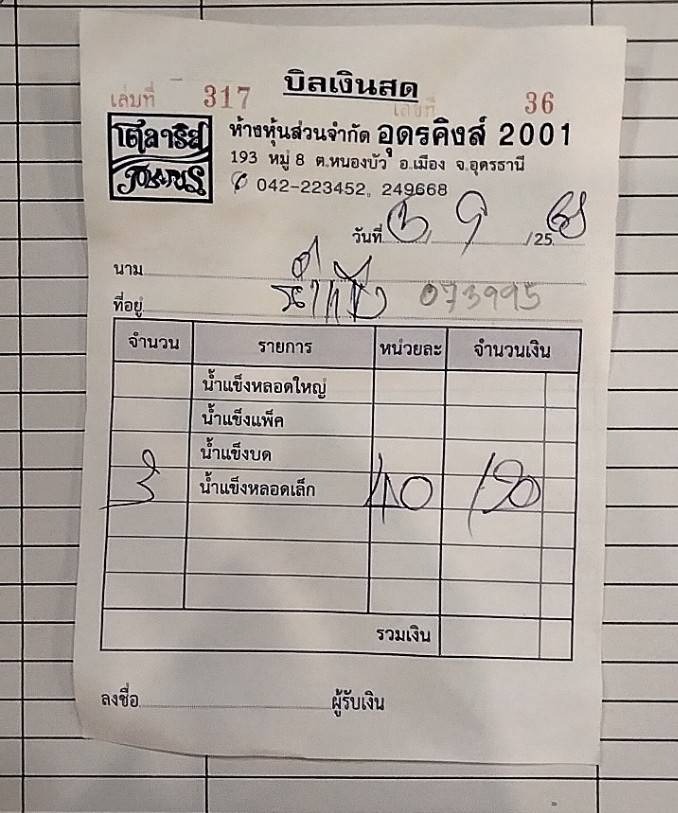 บิลเงินสด
เล่มที่ 317 เลขที่ 36
โพลาริส ห้างหุ้นส่วนจำกัด อุดรคิงส์ 2001
193 หมู่ 8 ต.หนองบัว อ.เมือง จ.อุดรธานี
042-223452, 249668
วันที่ 3 / 9 /25 68
นาม
ที่อยู่ 073995
จำนวน รายการ หน่วยละ จำนวนเงิน
น้ำแข็งหลอดใหญ่
น้ำแข็งแพ็ค
น้ำแข็งบด
3 น้ำแข็งหลอดเล็ก 40 120
รวมเงิน
ลงชื่อ ผู้รับเงิน